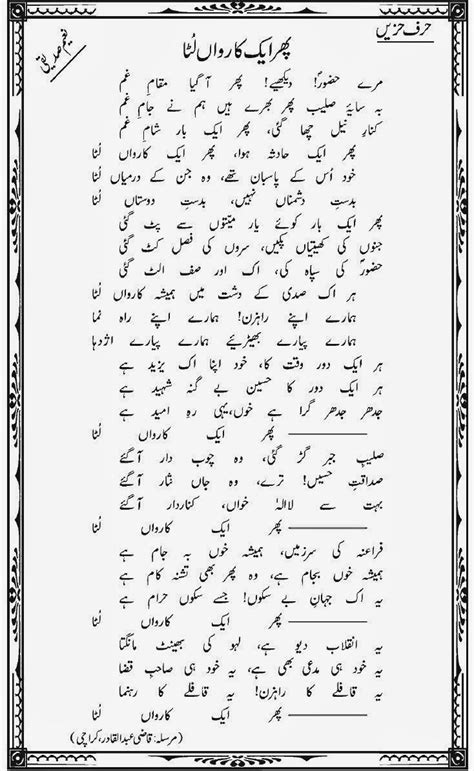 حرف حزیں
پھر ایک کارواں لُٹا
نعیم صدیقی
مرے حضورؐ! دیکھیے! پھر آ گیا مقامِ غم
بہ سایۂ صلیب پھر بھرے ہیں ہم نے جامِ غم
کنارِ نیل چھا گئی، پھر ایک بار شامِ غم
پھر ایک حادثہ ہوا، پھر ایک کارواں لُٹا
خود اُس کے پاسباں تھے، وہ جن کے درمیاں لُٹا
بدستِ دشمناں نہیں، بدستِ دوستاں لُٹا
پھر ایک بار کوئے یار میتوں سے پٹ گئی
جنوں کی کھیتیاں پکیں، سروں کی فصل کٹ گئی
حضورؐ کی سپاہ کی، اک اور صف الٹ گئی
ہر اک صدی کے دشت میں ہمیشہ کارواں لُٹا
ہمارے اپنے راہزن! ہمارے اپنے راہ نما
ہمارے پیارے بھیڑیے ہمارے پیارے اژدہا
ہر ایک دور وقت کا، خود اپنا اک یزید ہے
ہر ایک دور کا حسین بے گنہ شہید ہے
جدھر جدھر گرا ہے خوں، یہی رہِ امید ہے
پھر ایک کارواں لُٹا
صلیبِ جبر گڑ گئی، وہ چوب دار آگئے
صداقتِ حسیں! ترے، وہ جاں نثار آگئے
بہت سے لاالٰہ خواں، کناردار آگئے
پھر ایک کارواں لُٹا
فراعنہ کی سرزمیں، ہمیشہ خوں بہ جام ہے
ہمیشہ خوں بجام ہے، وہ پھر بھی تشنہ کام ہے
یہ اک جہانِ بے سکوں! جسے سکوں حرام ہے
پھر ایک کارواں لُٹا
یہ انقلاب دیو ہے، لہو کی بھینٹ مانگتا
یہ خود ہی مدعی بھی ہے، یہ خود ہی صاحبِ قضا
یہ قافلے کا راہزن! یہ قافلے کا رہنما
پھر ایک کارواں لُٹا
(مرسلہ: قاضی عبدالقادر، کراچی)